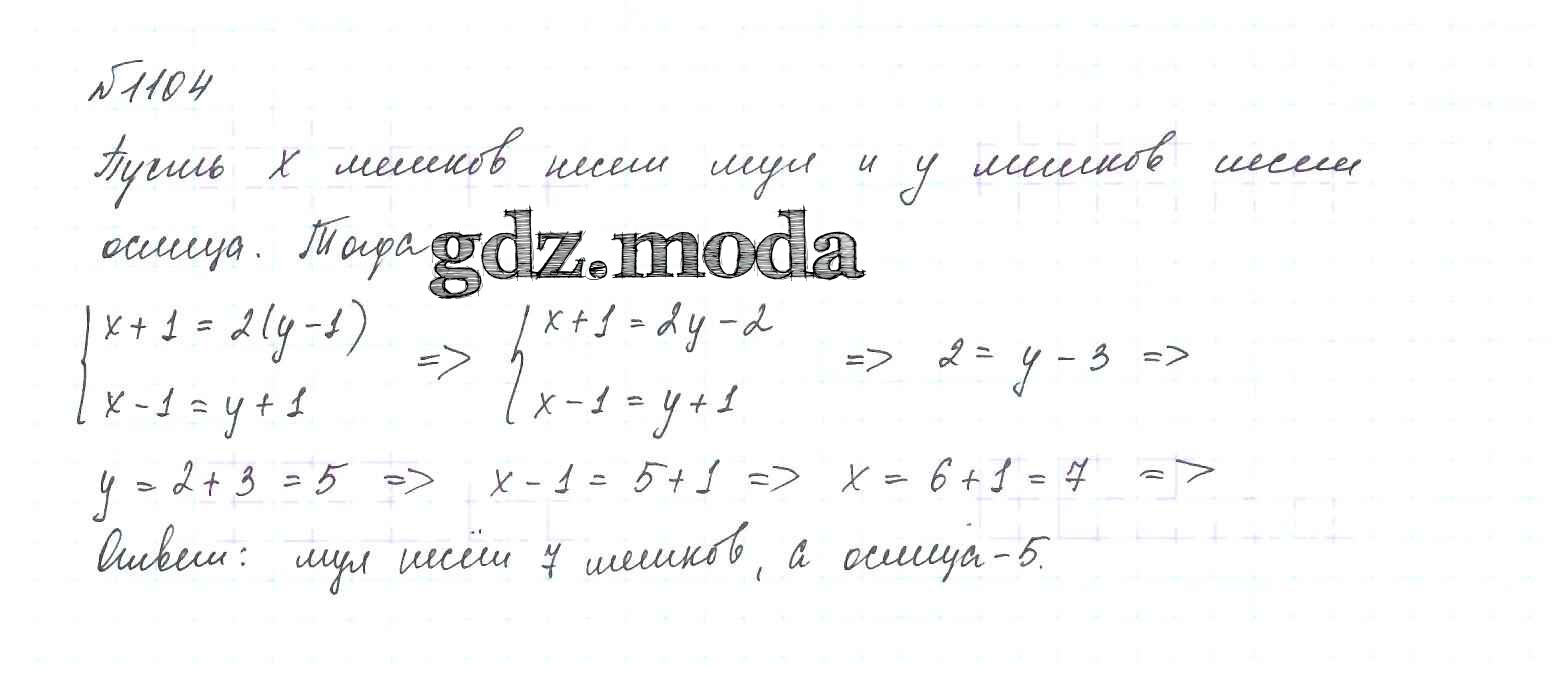 №1104
Пусть x мешков несет мул и y мешков несет
ослица. Тогда
gdz.moda
{ x + 1 = 2(y - 1) => { x + 1 = 2y - 2 => 2 = y - 3 =>
{ x - 1 = y + 1 { x - 1 = y + 1
y = 2 + 3 = 5 => x - 1 = 5 + 1 => x = 6 + 1 = 7 =>
Ответ: мул несёт 7 мешков, а ослица - 5.